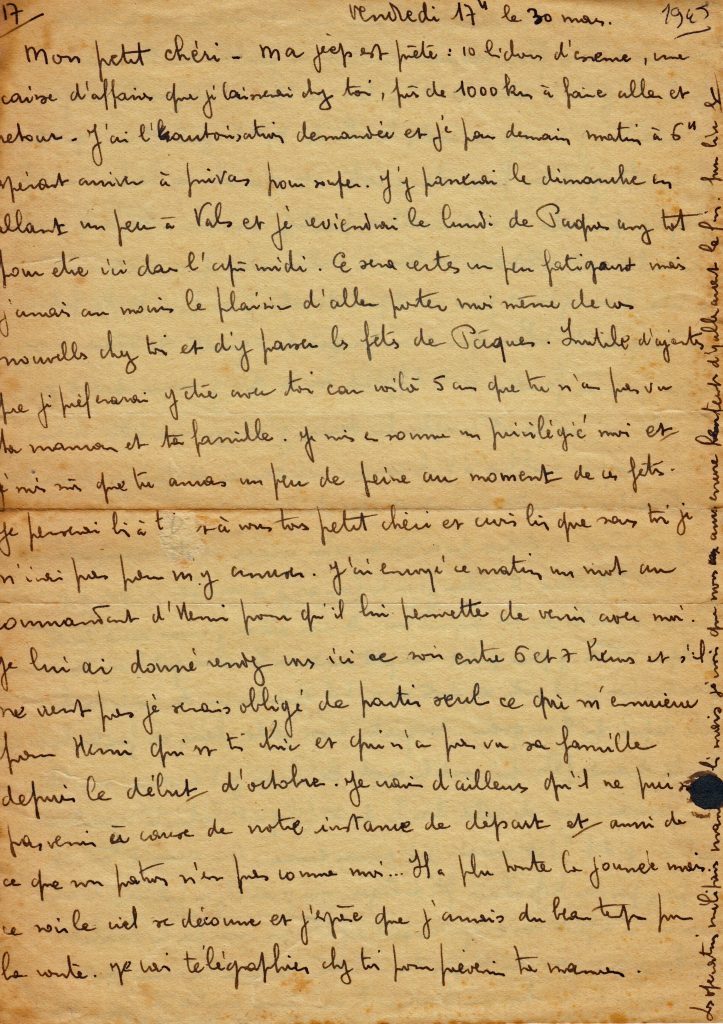 17
Vendredi 17h le 30 mars. 1945
Mon petit chéri - ma jeep est prête : 10 bidons d'essence, une
caisse d'affaires que je laisserai chez toi, près de 1000 km à faire aller et
retour - J'ai l'autorisation demandée et je pars demain matin à 6h
espérant arriver à Privas pour souper. J'y passerai le dimanche en
allant un peu à Vals et je reviendrai le lundi de Paques assez tot
pour etre ici dans l'après midi. Ce sera certes un peu fatigant mais
j'aurais au moins le plaisir d'aller porter moi même de vos
nouvelles chez toi et d'y passer les fetes de Pâques. Inutile d'ajouter
que je préfererai y être avec toi car voilà 5 ans que tu n'as pas vu
ta maman et ta famille. Je suis en somme un privilégié moi et
je suis sûr que tu auras un peu de peine au moment de ces fetes.
Je penserai là à toi et à vous tous petit chéri et crois bien que sans toi je
n'irai pas pour m'y amuser. J'ai envoyé ce matin un mot au
commandant d'Henri pour qu'il lui permette de venir avec moi.
Je lui ai donné rendez vous ici ce soir entre 6 et 7 heures et s'il
ne vient pas je serais obligé de partir seul ce qui m'ennuiera
pour Henri qui est ti et qui n'a pas vu sa famille
depuis le début d'octobre. Je crains d'ailleurs qu'il ne puisse
pas venir à cause de notre instance de départ et aussi de
ce que son patron n'est pas comme moi... Il a plu toute la journée mais
ce soir le ciel se découvre et j'espère que j'aurais du beau temps pour
la route. Je vais télégraphier chez toi pour prévenir ta maman.
Les opérations militaires mais je crois que nous en aurons encore avant la fin.